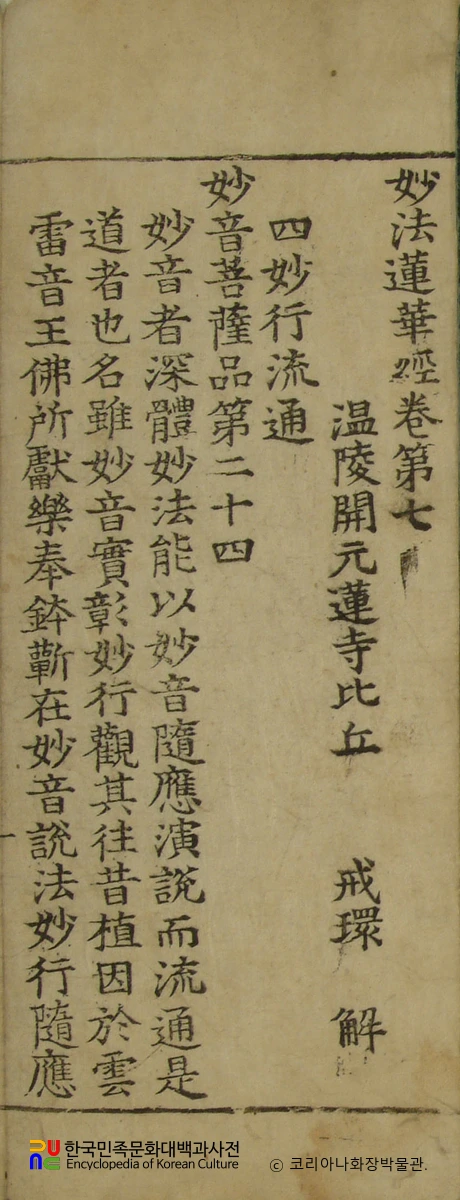 妙法蓮華經卷第七
温陵開元蓮寺比丘 戒環 解
四妙行流通
妙音菩薩品第二十四
妙音者深體妙法能以妙音隨應演說而流通是
道者也名雖妙音實彰妙行觀其往昔植因於雲
雷音王佛所獻樂奉鉢蘄在妙音說法妙行隨應
한국민족문화대백과사전
Encyclopedia of Korean Culture
© 코리아나화장박물관.